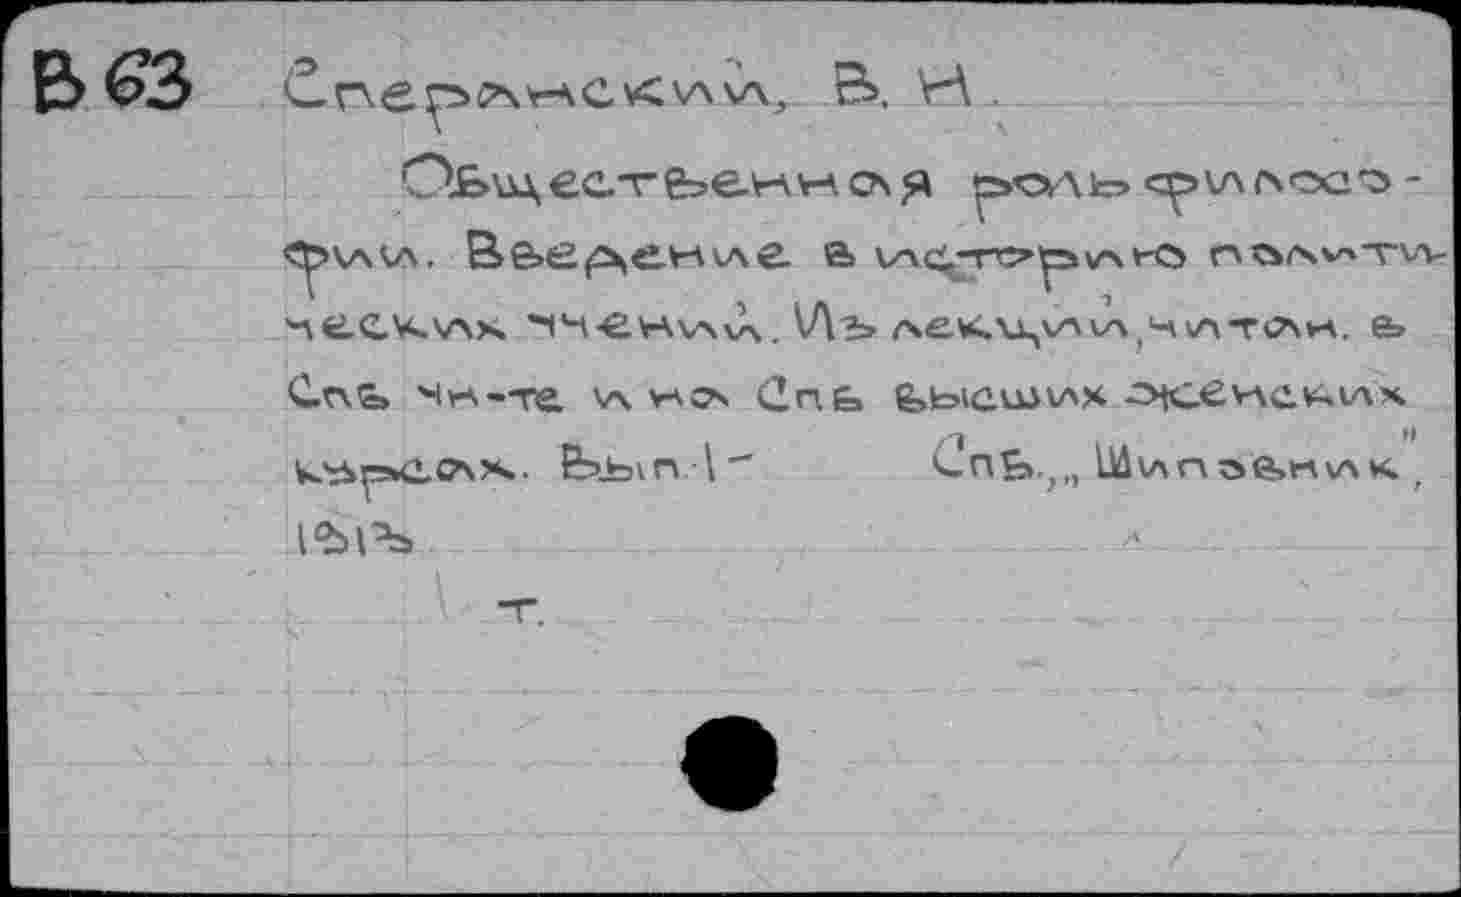 В63 Сперанский, В. Н.
Общественная роль филосо-
фии. Введение в историю полити-
ческих учений. Изъ лекций, читан. в
Спб Ун-те и на Спб высших женских
курсах. Вып 1- Спб., „Шиповник",
1913
т.